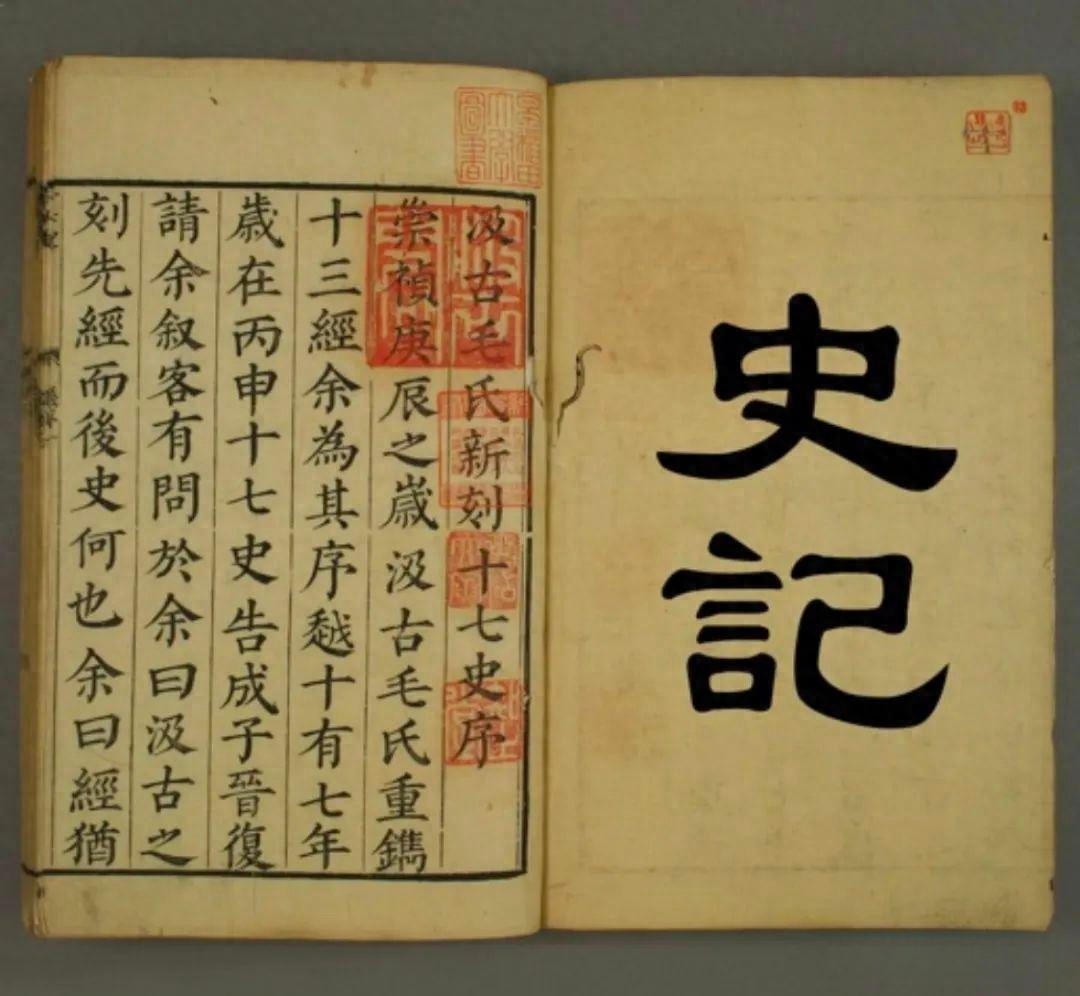 史記
早稻田
大學
圖書
汲古毛氏新刻十七史序
崇禎庚辰之嵗汲古毛氏重鐫
十三經余為其序越十有七年
歳在丙申十七史告成子晉復
請余叙客有問於余曰汲古之
刻先經而後史何也余曰經猶